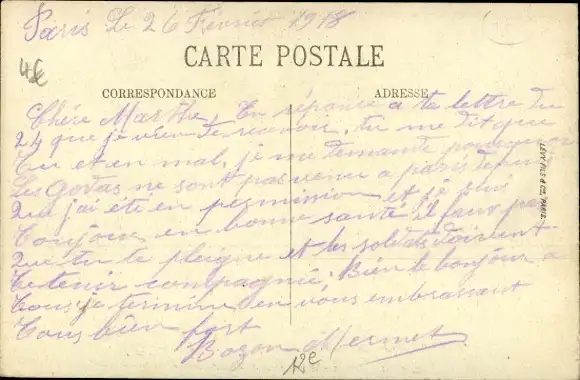 Paris Le 26 Fevrier 1918
4€
CARTE POSTALE
CORRESPONDANCE
ADRESSE
Chére Marthe, En réponse a ta lettre du
24 que je vien de recevoir, tu me dit que
tu et en mal, je me demande pourquoi
Les Gotas ne sont pas venu a paris depuis
que j'ai été en permission et je suis
toujour en bonne santé il faux pas
que tu te plaigne et les soldats doivent
te tenir compagnie, Bien le bonjour a
tous je termine en vous embrassant
tous bien fort
Bozon Mermet
LEVY FILS & Cie, PARIS